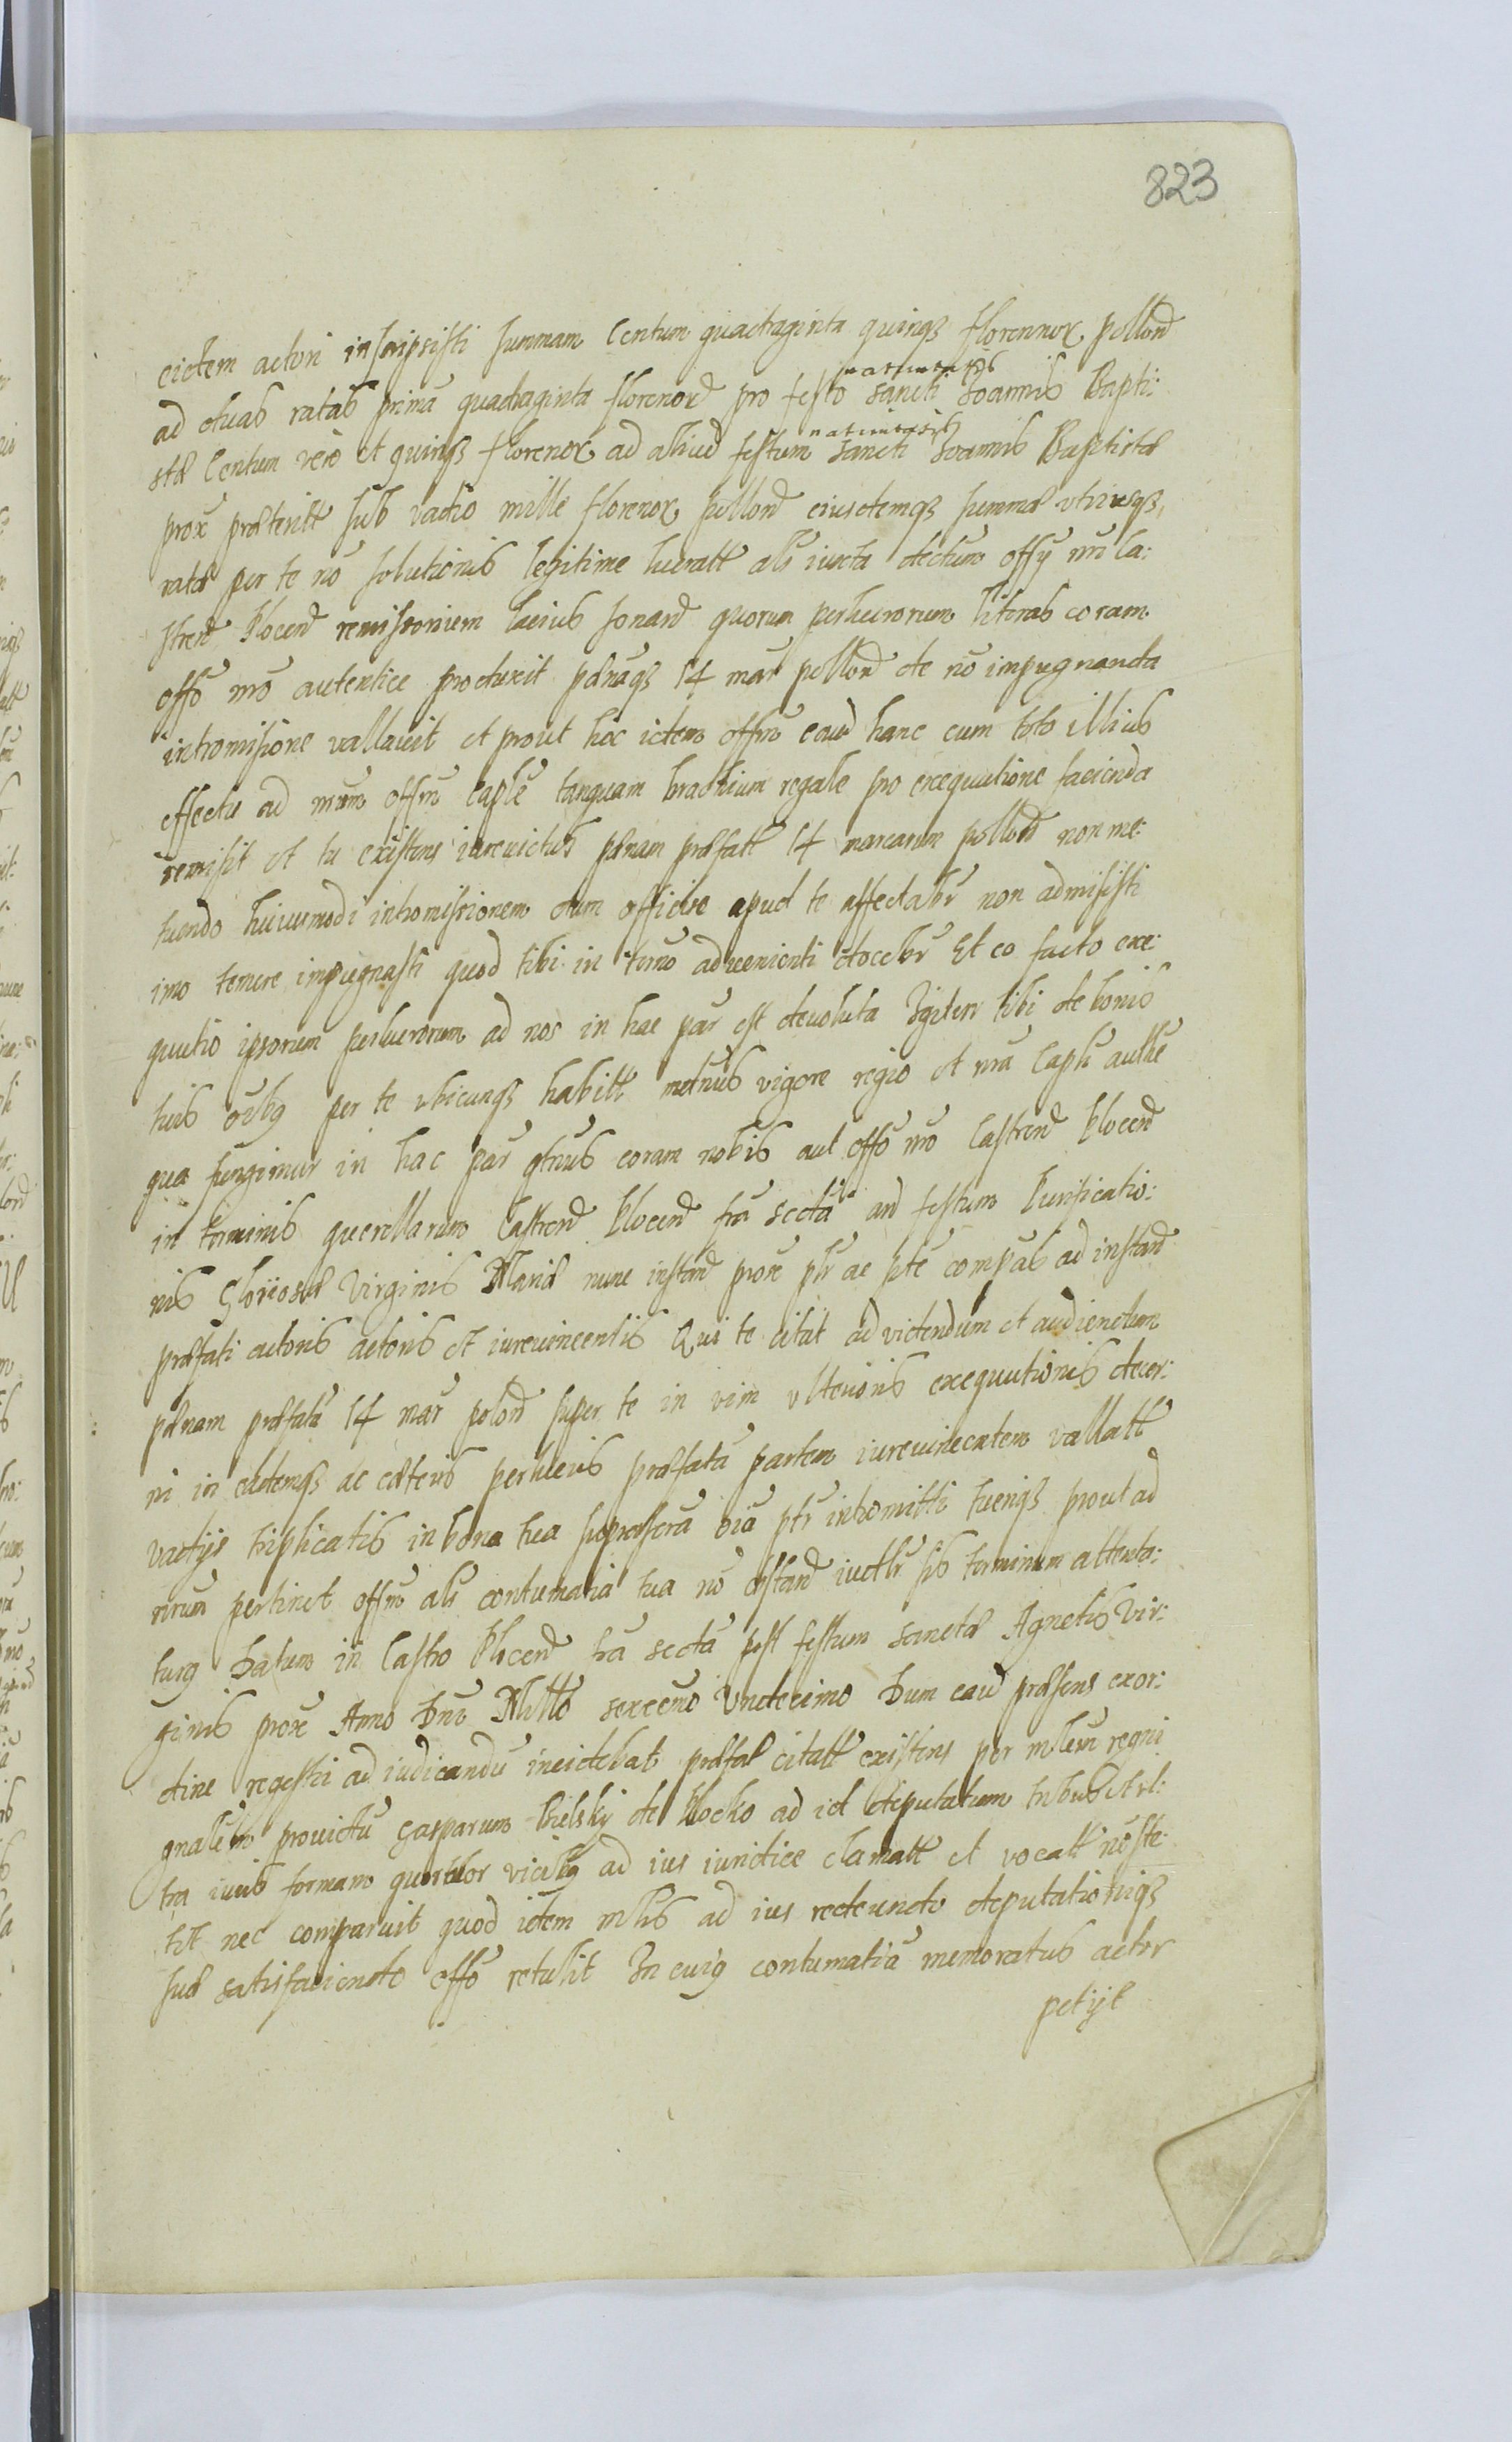 823
eidem actori inscripsisti summam Centum quadraginta quinqз florennox pollond
natiuitatis
ad duas ratas prima quadraginta florenord pro festo sancti Joannis Bapti:
natiuitatis
stæ Centum vero et quinqз florenox ad aliud festum sancti Joannis Baptistæ
prox præteritt sub vadio mille florenox pollond eiusdemqз summæ vtriusqз
ratæ per te nõ solutionis legitime lucratt als iuxta dectum offÿ nri Ca:
strend Plocend remissoriem lacius sonand quorum perlucrorum literas coram
offõ nrõ autentice produxit pænaqз 14 mar pollond de nõ impugnanda
intromisione vallauit et prout hoc idem offm caud hanc cum toto illius
effectu ad nrum offm Caplē tanquam brachium regale pro exequutione facienda
remisit et tu existens iureuictus pænam præfatt 14 marcarum pollond non me:
tuendo huiusmodi intromissionem dum officiose apud te affectabr non admisisti
imo temere impugnasti quod tibi in termo aduenienti docebr Et eo facto exe:
quutio ipsorum perlucrorum ad nos in hac par est deuoluta Igitur tibi de bonis
tuis oibɋ per te vbicunqз habitt mdnus vigore regio et nra Captli authe
qua fungimur in hac par qtnus coram nobis aut offõ nrõ Castrend Plocend
in terminis querellarum Castrend Plocend fra secda and festum Purificatio:
nis Gloriosæ Virginis Mariæ nunc instand prox plr ac pte compas ad instand
præfati actoris actoris et iureuincentis Qui te citat ad videndum et audiendum
pænam præfata 14 mar polond super te in vim vlterioris exequutionis decer:
ni in eademqз ac cæteris perlucris præfata partem iureuincentem vallatt
vadÿs triplicatis in bona tua supradcra oia ptr intromitti tuenqз prout ad
nrum pertinet offm als contumatia tua nõ obstand iudtr sis terminum attenta:
turɋ Datum in Castro Plocend fra secda post festum sanctæ Agnetis Vir:
ginis prox Anno Dni Millo sexcenõ Vndecimo Dum caud præsens exor:
dine regestri ad iudicandu incidebat præfat citatt existens per mlem regni
gnalem prouidũ Gasparum Bielsky de Plocko ad id deputatum tribus vl:
tra iuris formam quortlor vicibɋ ad ius iuridice clamatt et vocatt nõ ste:
tit nec comparuit quod idem mlis ad ius redeundo deputationiqз
suæ satisfaciendo offõ retulit In cuiɋ contumatiã memoratus actor
petÿt